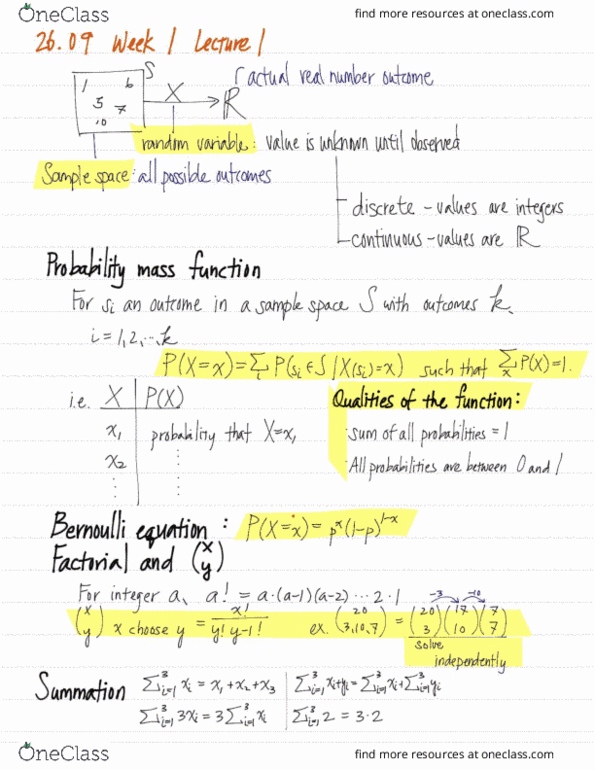 OneClass
find more resources at oneclass.com
26.09 Week 1 Lecture 1
S
1 6
5 7
10
X
ℝ
actual real number outcome
random variable: value is unknown until observed
Sample space: all possible outcomes
discrete - values are integers
continuous - values are ℝ
Probability mass function
For si an outcome in a sample space S with outcomes k,
i = 1,2, ... k
P(X=x) = Σi P(si ∈ S | X(si) = x) such that Σx P(X) = 1.
i.e. X | P(X)
x1 | probability that X=x1
x2 | ⋮
⋮ | ⋮
Qualities of the function:
·sum of all probabilities = 1
·All probabilities are between 0 and 1
Bernoulli equation: P(X=x) = p^x (1-p)^(1-x)
Factorial and (x y)
For integer a, a! = a·(a-1)(a-2) ... 2·1
(x y) x choose y = x! / y! y-1! ex. (20 3,10,7) = (20 3)(17 10)(7 7)
-3 -10
solve
independently
Summation
Σ³i=1 xi = x1 + x2 + x3 | Σ³i=1 xi+yi = Σ³i=1 xi + Σ³i=1 yi
Σ³i=1 3xi = 3 Σ³i=1 xi | Σ³i=1 2 = 3·2
OneClass
find more resources at oneclass.com